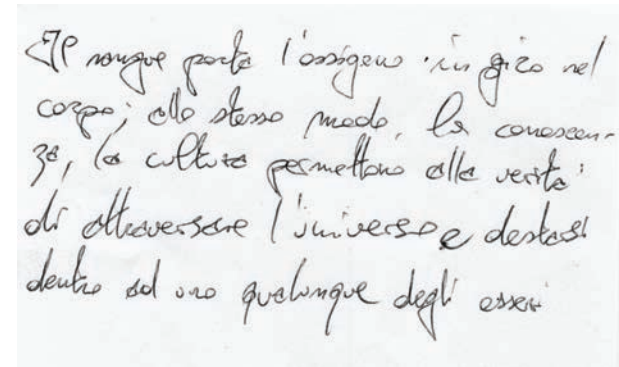 Il sangue porta l'ossigeno in giro nel
corpo; allo stesso modo, la conoscen-
za, la cultura permettono alla verità
di attraversare l'universo e destarsi
dentro ad uno qualunque degli esseri